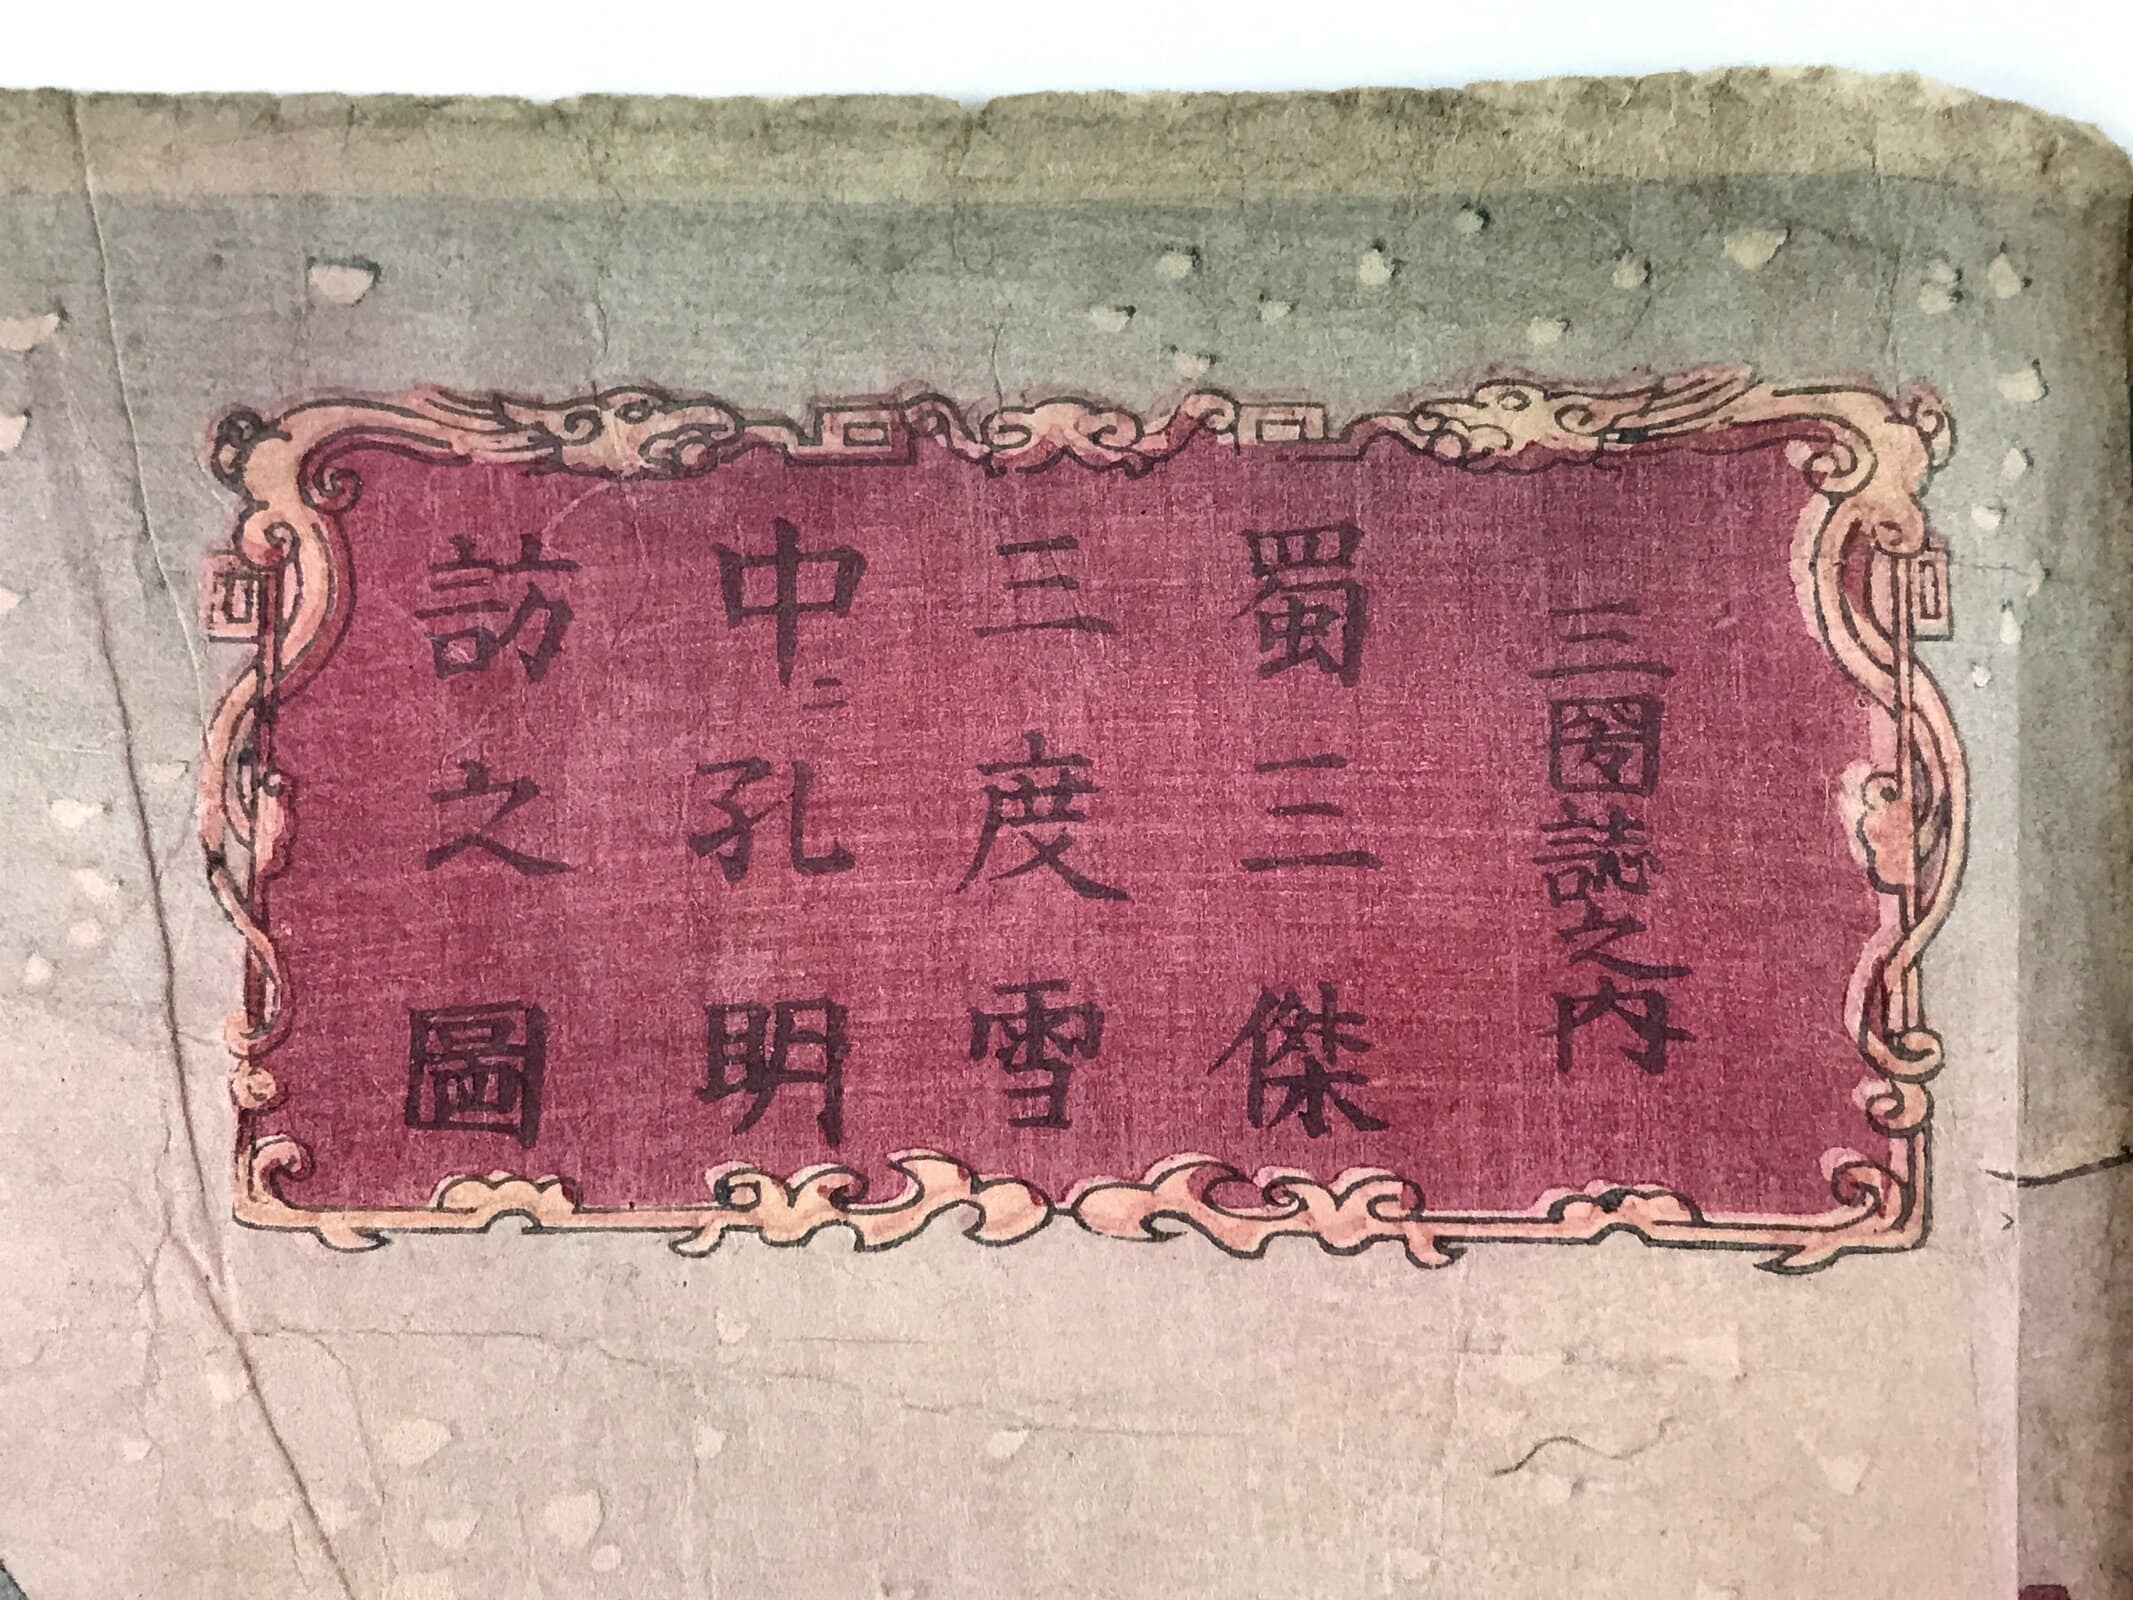 三國誌之内
蜀三傑
三度雪
中ニ孔明
訪之圖